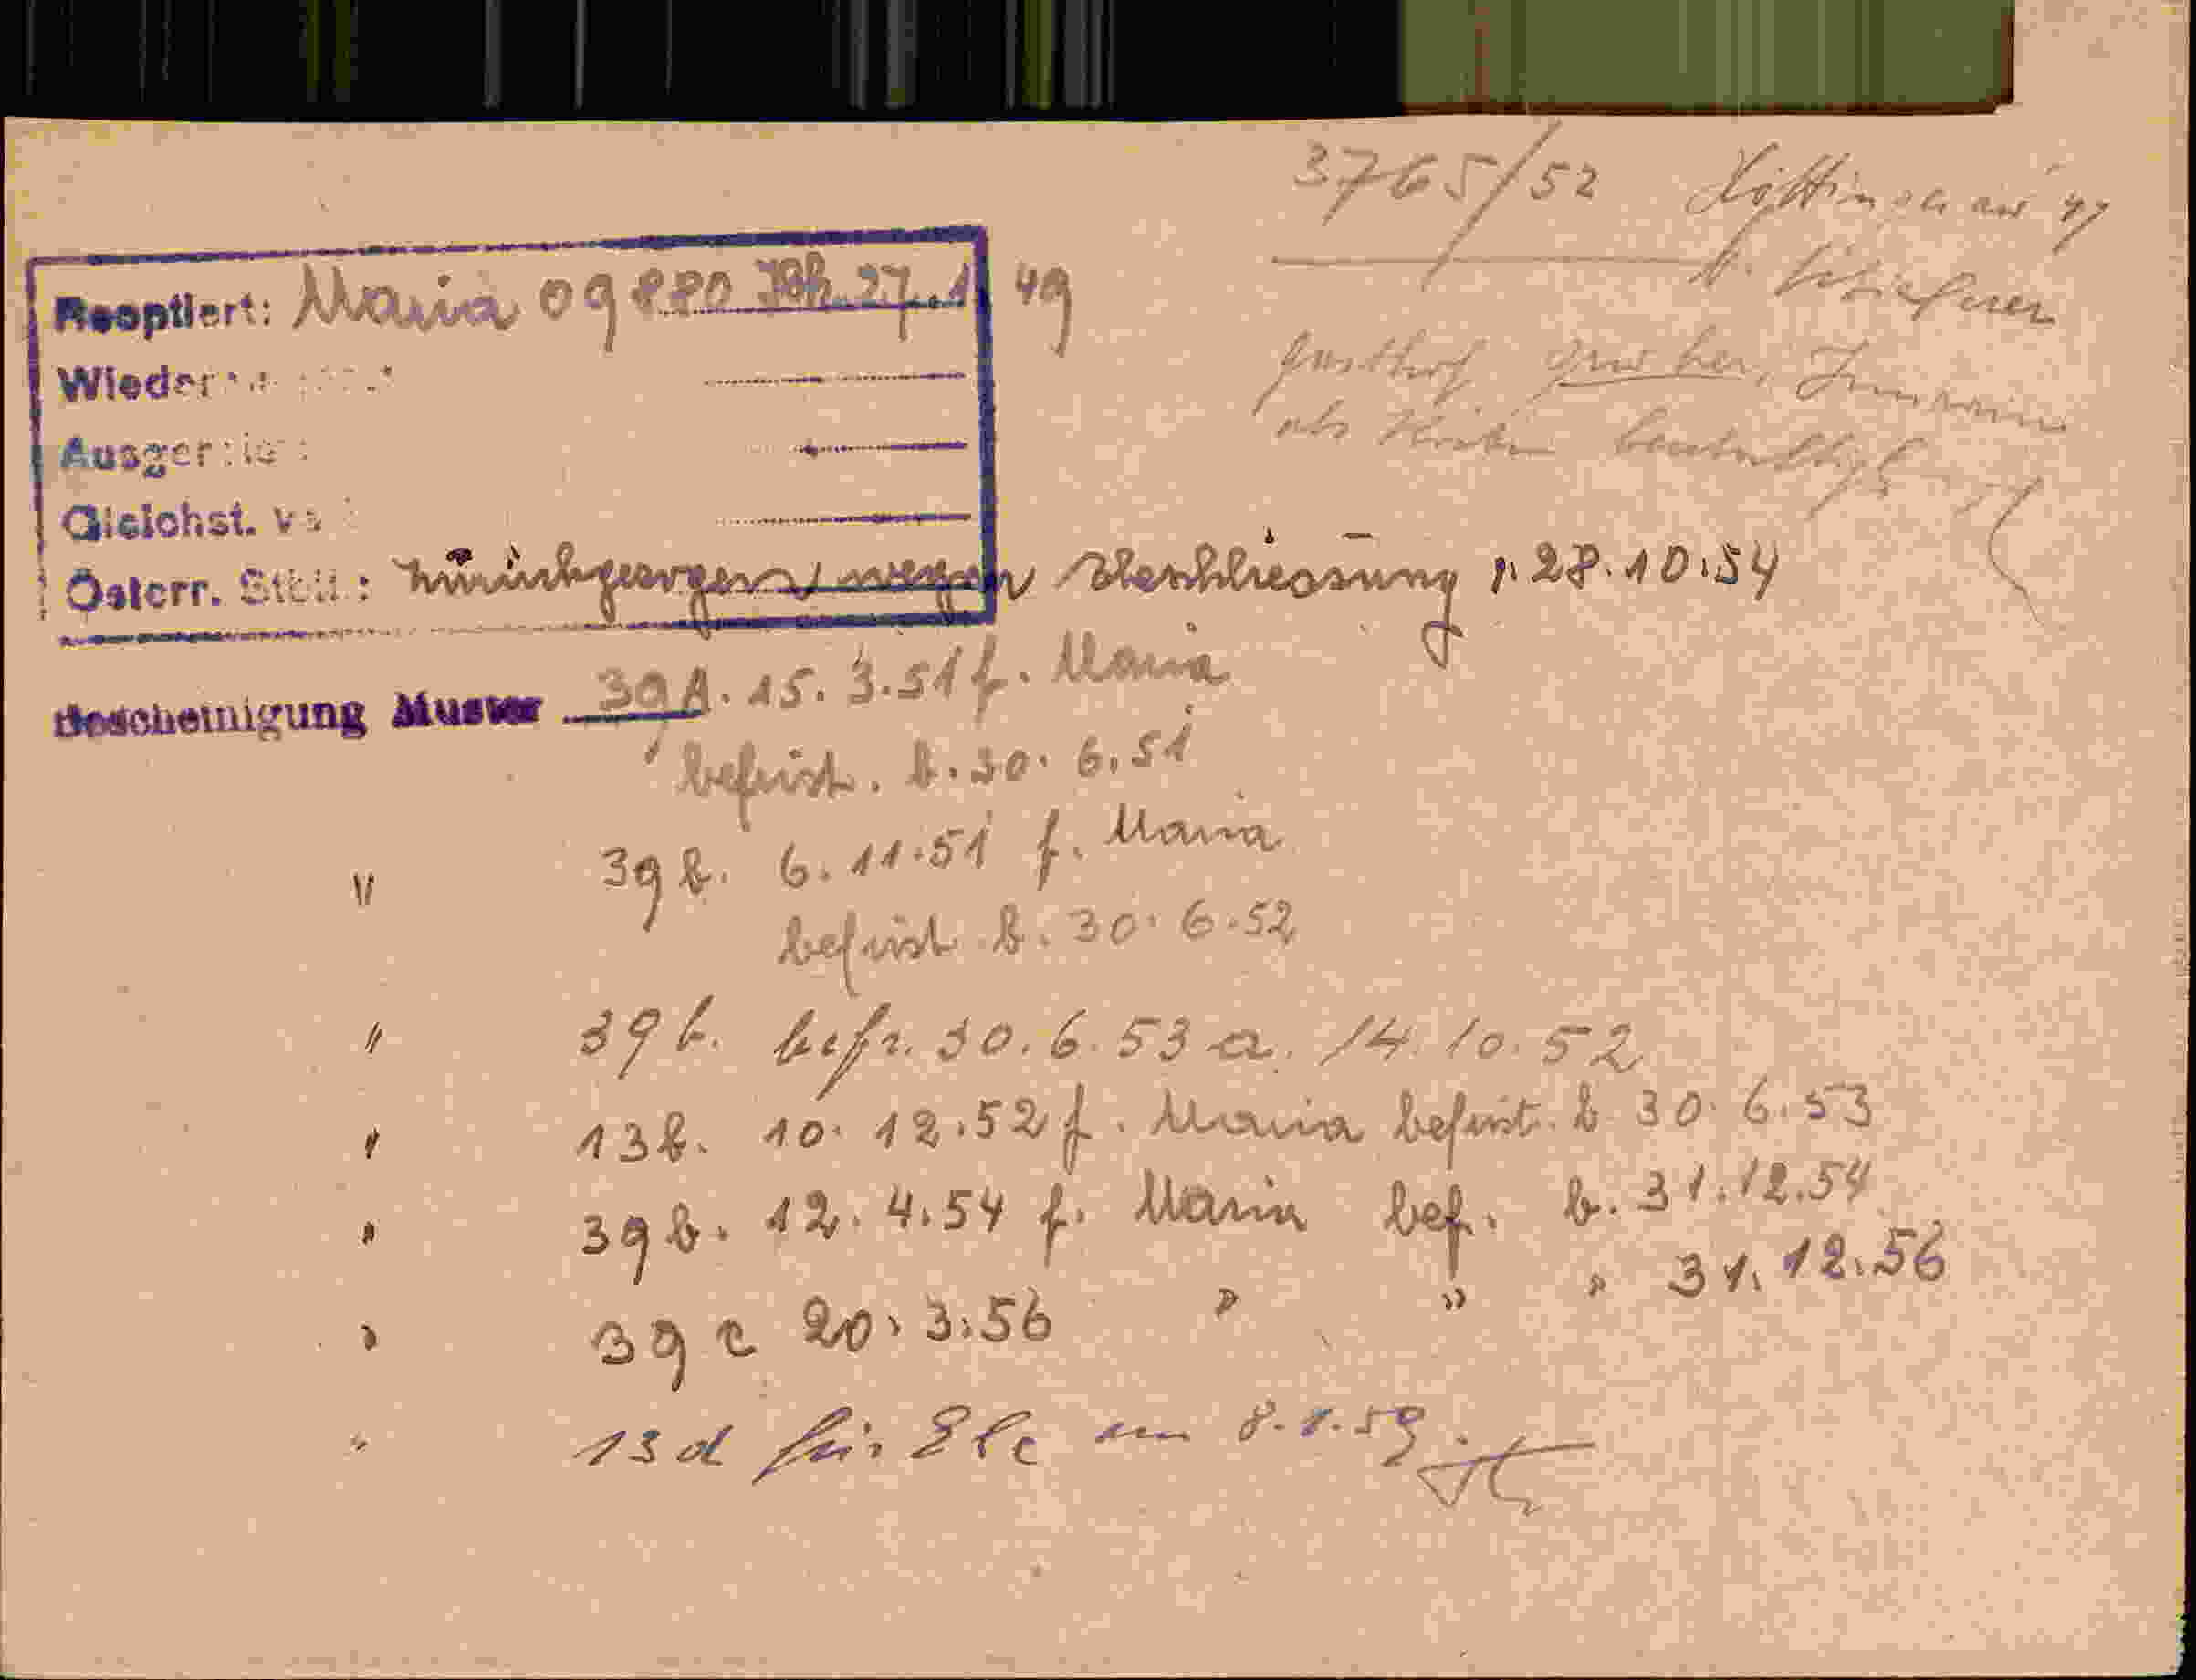 3765/52 Höttingerau 47
Gasthof Gruber, Innrain
als beschäftigt
Reoptiert: Maria 09880 Ibk. 27. 1. 49
Wieder
Ausger
Gleichst.
Österr. Stbü: zurückgezogen, wegen Eheschliessung 28.10.54
Bescheinigung Muster 39A. 15. 3.51 f. Maria
befrist. b. 30. 6.51
" 39 b. 6. 11.51 f. Maria
befrist b. 30. 6.52
" 39 b. befr. 30. 6. 53 a. 14. 10. 52
" 13 b. 10. 12.52 f. Maria befrist. b 30. 6.53
" 39 b. 12. 4.54 f. Maria bef. b. 31.12.54
" 39 c 20. 3.56 " " " 31. 12.56
" 13 d für am 8.1.59